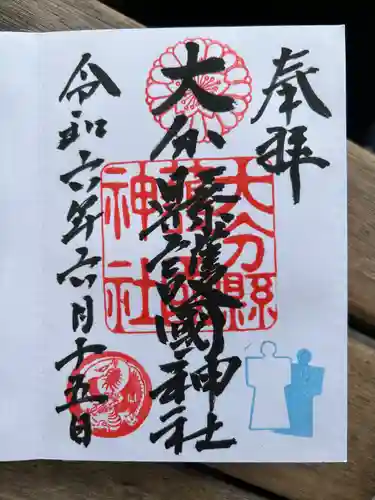 奉拝
大分縣護國神社
大分縣
護國
神社
令和六年六月十五日